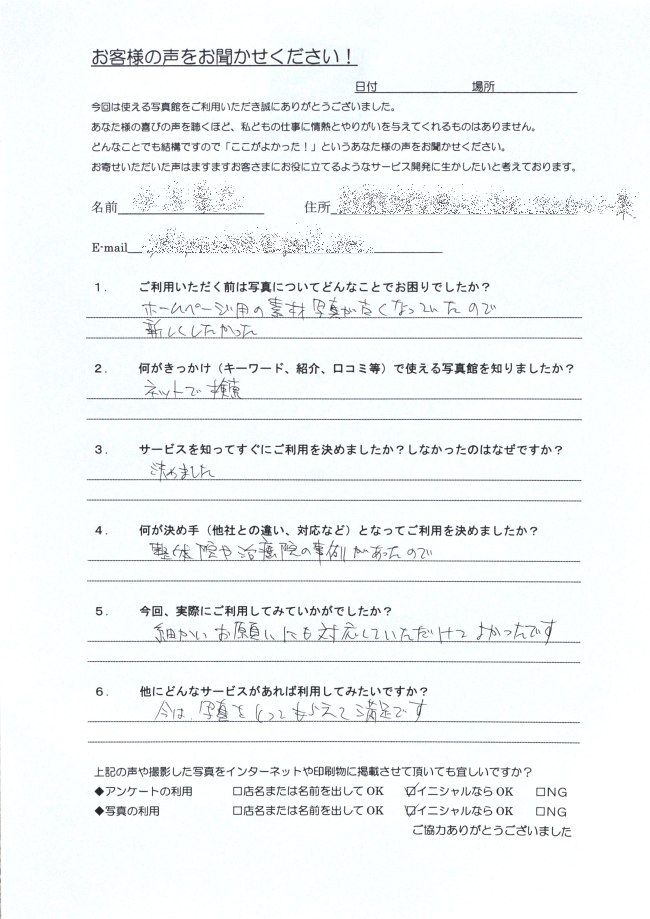 お客様の声をお聞かせください！
日付 場所
今回は使える写真館をご利用いただき誠にありがとうございました。
あなた様の喜びの声を聴くほど、私どもの仕事に情熱とやりがいを与えてくれるものはありません。
どんなことでも結構ですので「ここがよかった！」というあなた様の声をお聞かせください。
お寄せいただいた声はますますお客さまにお役に立てるようなサービス開発に生かしたいと考えております。
名前 住所
E-mail
1． ご利用いただく前は写真についてどんなことでお困りでしたか？
ホームページ用の素材写真が古くなっていたので
新しくしたかった
2． 何がきっかけ（キーワード、紹介、口コミ等）で使える写真館を知りましたか？
ネットで検索
3． サービスを知ってすぐにご利用を決めましたか？しなかったのはなぜですか？
決めました
4． 何が決め手（他社との違い、対応など）となってご利用を決めましたか？
整体院や治療院の事例があったので
5． 今回、実際にご利用してみていかがでしたか？
細かいお願いにも対応していただけてよかったです
6． 他にどんなサービスがあれば利用してみたいですか？
今は、写真をとってもらえて満足です
上記の声や撮影した写真をインターネットや印刷物に掲載させて頂いても宜しいですか？
◆アンケートの利用 □店名または名前を出して OK ☑イニシャルなら OK □NG
◆写真の利用 □店名または名前を出して OK ☑イニシャルなら OK □NG
ご協力ありがとうございました